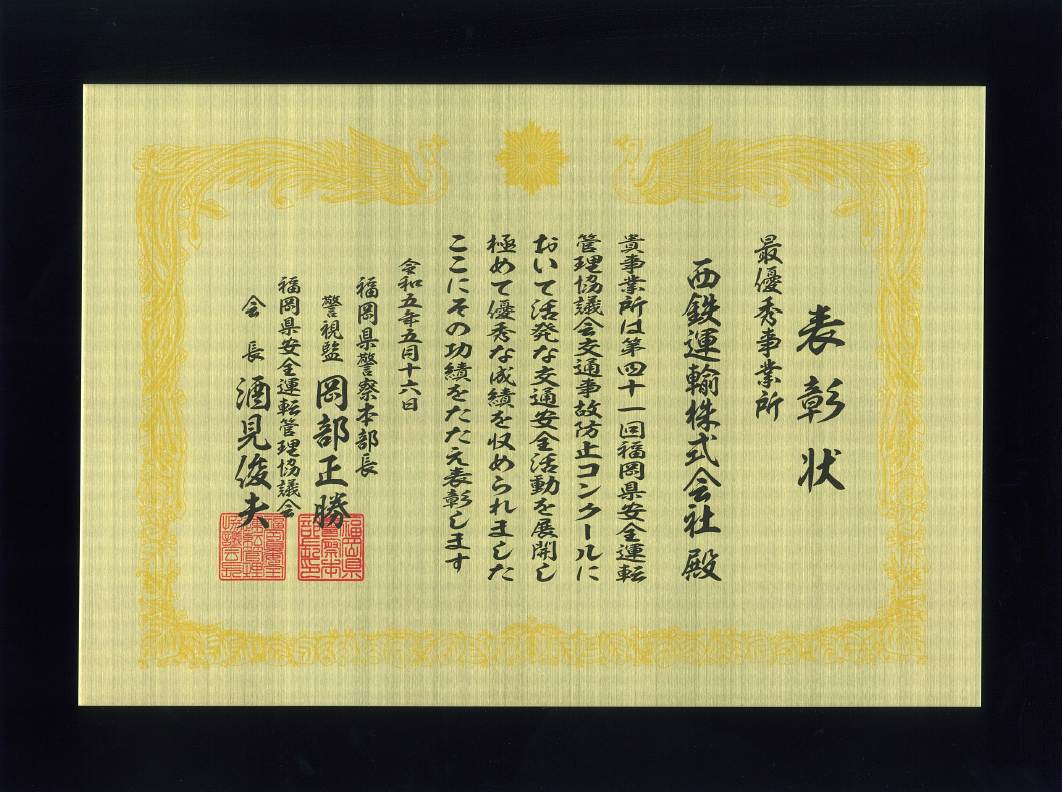 表彰状
最優秀事業所
西鉄運輸株式会社 殿
貴事業所は第四十一回福岡県安全運転
管理協議会交通事故防止コンクールに
おいて活発な交通安全活動を展開し
極めて優秀な成績を収められました
ここにその功績をたたえ表彰します
令和五年五月十六日
福岡県警察本部長
警視監 岡部正勝
福岡県安全運転管理協議会
会長 酒見俊夫
福岡県警察本部長印